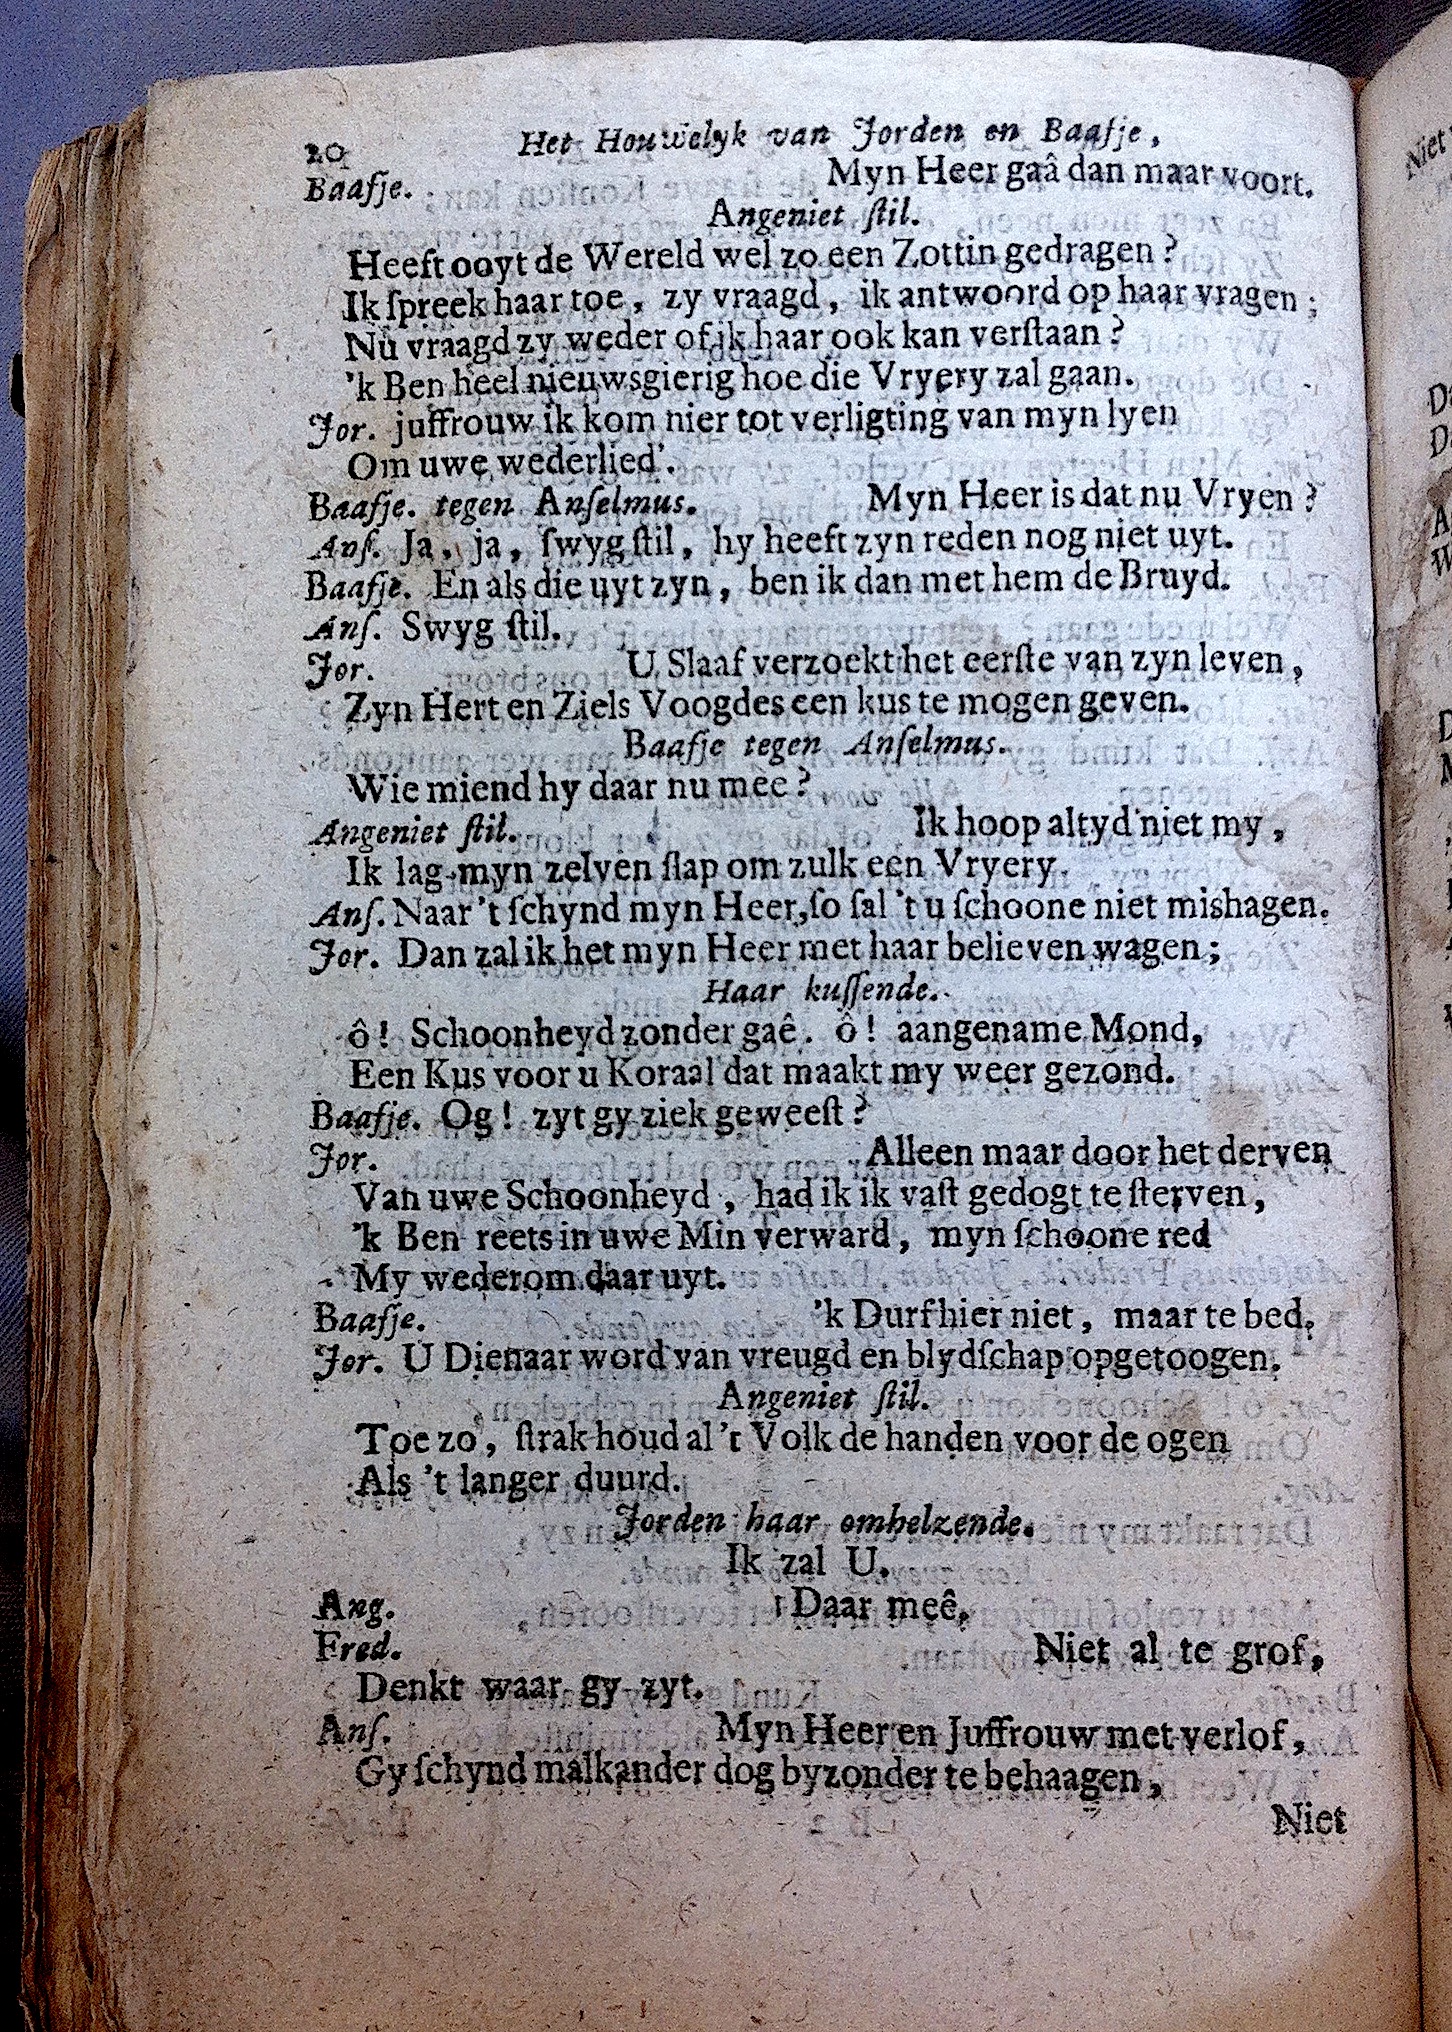 20 Het Houwelyk van Jorden en Baafje,
Baafje. Myn Heer gaâ dan maar voort.
Angeniet ſtil.
Heeft ooyt de Wereld wel zo een Zottin gedragen?
Ik ſpreek haar toe, zy vraagd, ik antwoord op haar vragen;
Nu vraagd zy weder of ik haar ook kan verſtaan?
'k Ben heel nieuwsgierig hoe die Vryery zal gaan.
Jor. juffrouw ik kom nier tot verligting van myn lyen
Om uwe wederlied'.
Baafje. tegen Anſelmus. Myn Heer is dat nu Vryen?
Anſ. Ja, ja, ſwyg ſtil, hy heeft zyn reden nog niet uyt.
Baafje. En als die uyt zyn, ben ik dan met hem de Bruyd.
Anſ. Swyg ſtil.
Jor. U Slaaf verzoekt het eerſte van zyn leven,
Zyn Hert en Ziels Voogdes een kus te mogen geven.
Baafje tegen Anſelmus.
Wie miend hy daar nu mee?
Angeniet ſtil. Ik hoop altyd niet my,
Ik lag myn zelven ſlap om zulk een Vryery.
Anſ. Naar 't ſchynd myn Heer, ſo ſal 't u ſchoone niet mishagen.
Jor. Dan zal ik het myn Heer met haar believen wagen;
Haar kuſſende.
ô! Schoonheyd zonder gaê. ô! aangename Mond,
Een Kus voor u Koraal dat maakt my weer gezond.
Baafje. Og! zyt gy ziek geweeſt?
Jor. Alleen maar door het derven
Van uwe Schoonheyd, had ik ik vaſt gedogt te ſterven,
'k Ben reets in uwe Min verward, myn ſchoone red
My wederom daar uyt.
Baafje. 'k Durf hier niet, maar te bed.
Jor. U Dienaar word van vreugd en blydſchap opgetoogen.
Angeniet ſtil.
Toe zo, ſtrak houd al 't Volk de handen voor de ogen
Als 't langer duurd.
Jorden haar omhelzende.
Ik zal U.
Ang. Daar meê.
Fred. Niet al te grof,
Denkt waar gy zyt.
Anſ. Myn Heer en Juffrouw met verlof,
Gy ſchynd malkander dog byzonder te behaagen,
Niet